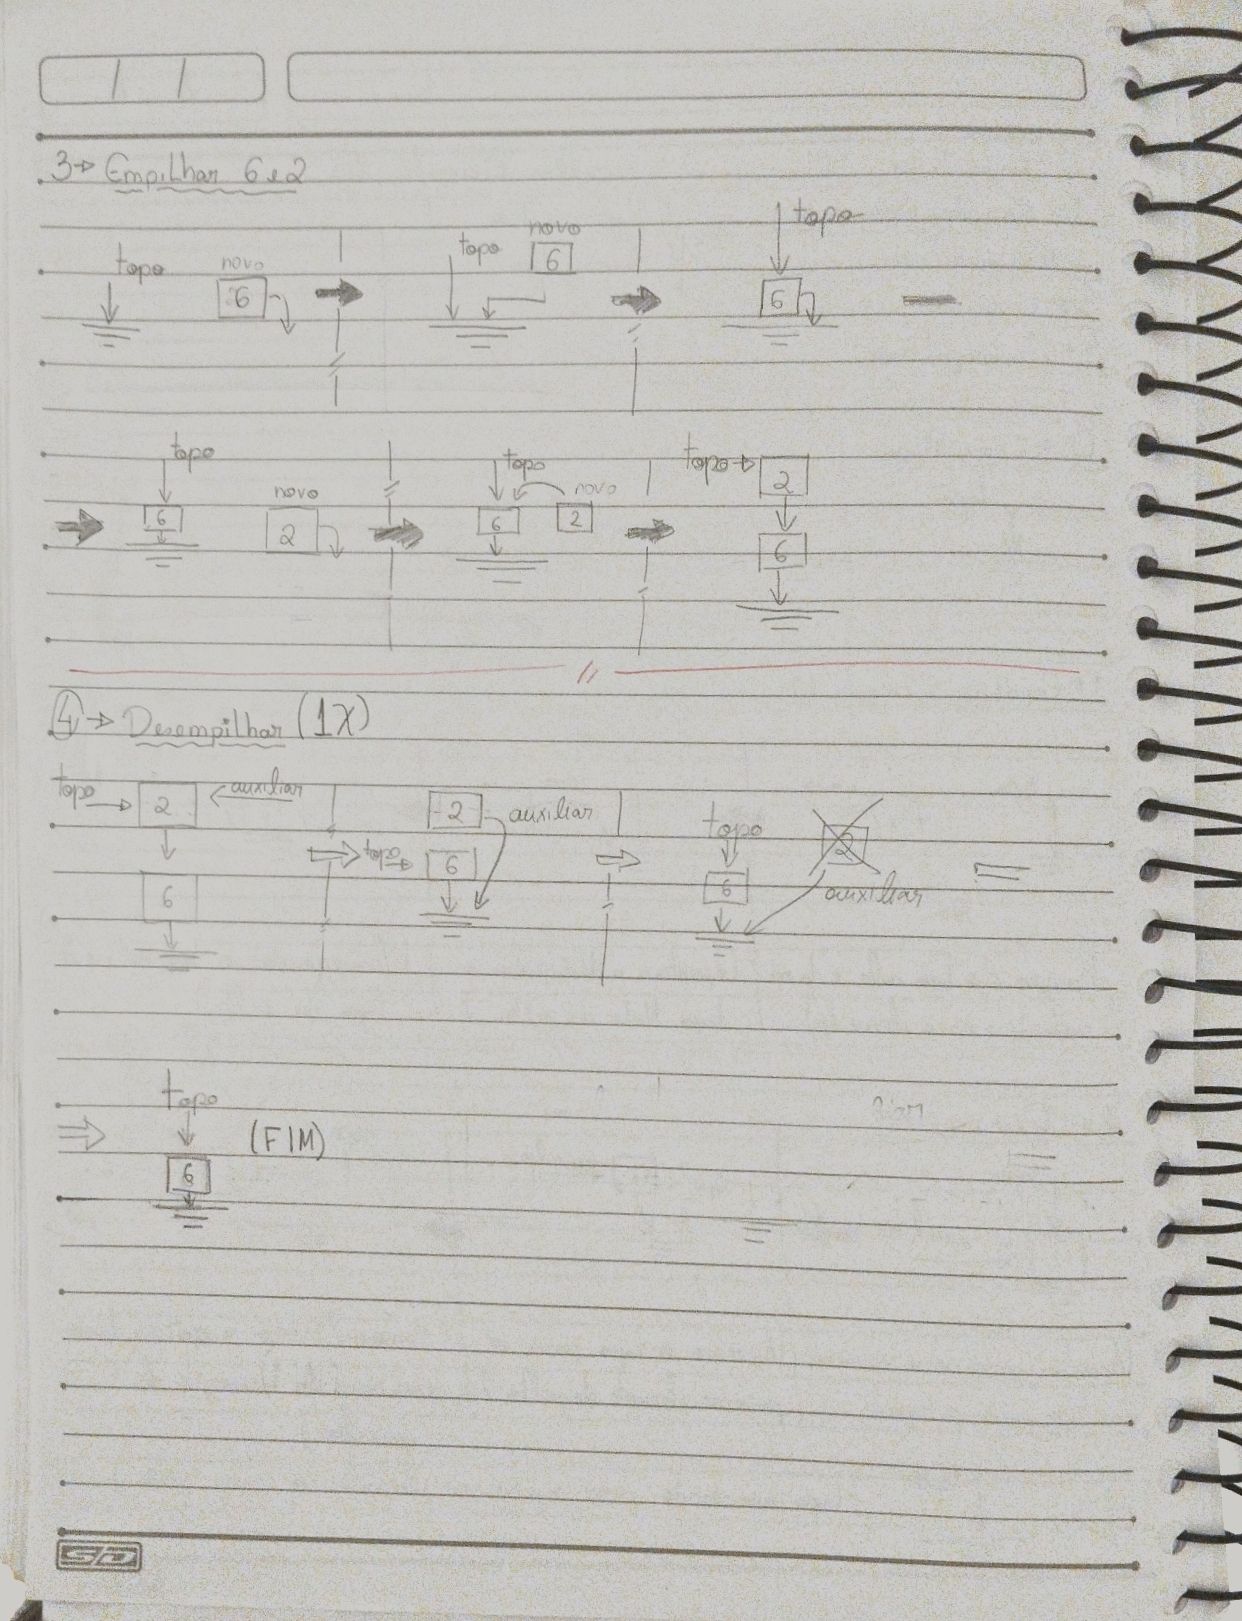 3→ Empilhar 6 e 2
topo novo topo novo topo
6 6 6
topo novo topo novo topo→ 2
6 2 6 2 6
4→ Desempilhar (1X)
topo→ 2 ←auxiliar 2 auxiliar topo 2
6 topo→ 6 6 auxiliar
topo
6 (FIM)
SD